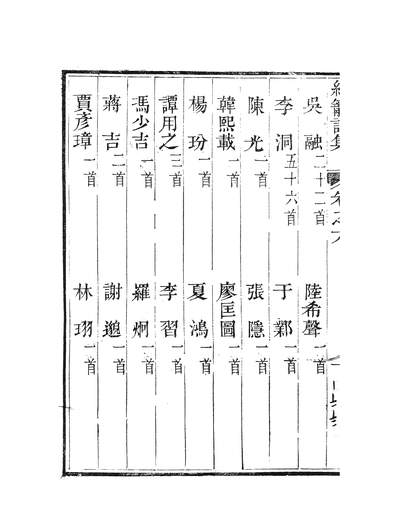 吳融二十二首　陸希聲一首
李洞五十六首　于鄴一首
陳光一首　張隱一首
韓熙載一首　廖匡圖一首
楊玢一首　夏鴻一首
譚用之三首　李習一首
馮少吉一首　羅炯一首
蔣吉二首　謝邈一首
賈彥璋一首　林珝一首